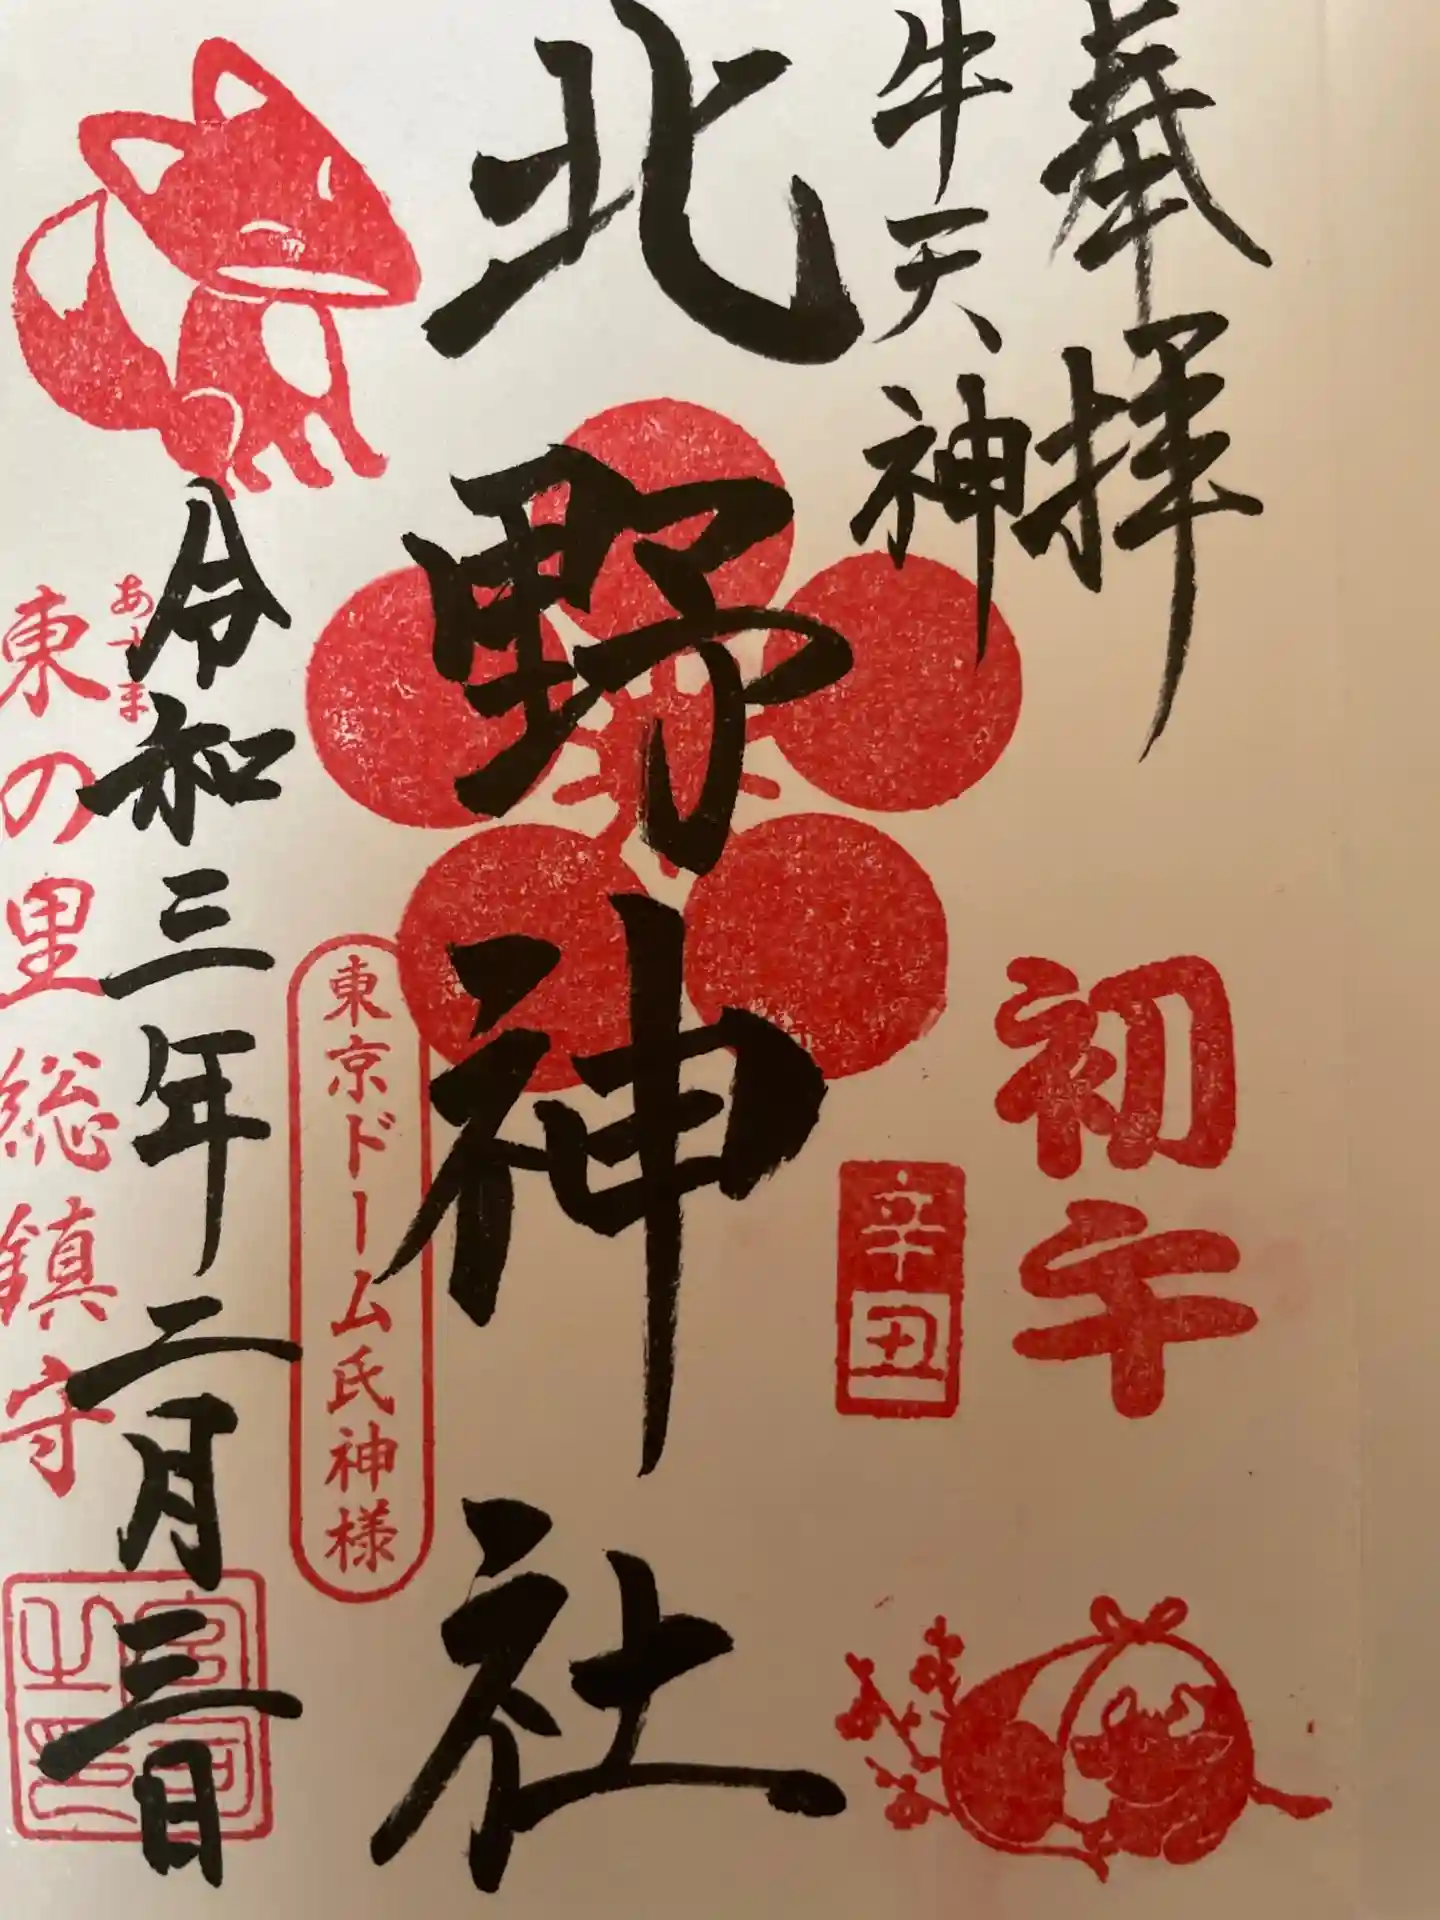 奉拝
牛天神
北野神社
初午
辛丑
東京ドーム氏神様
令和三年二月三日
あづま
東の里総鎮守
宮司之印